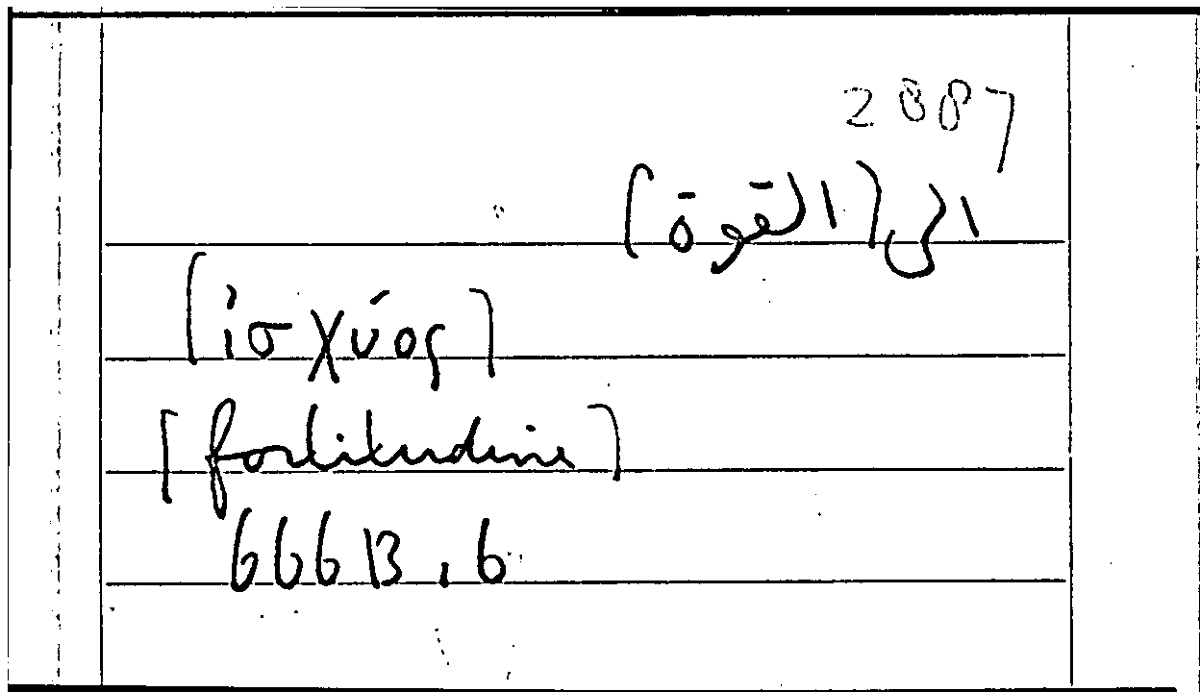 2887
الى [القوة]
[ἰσχύος]
[fortitudine]
666B,6